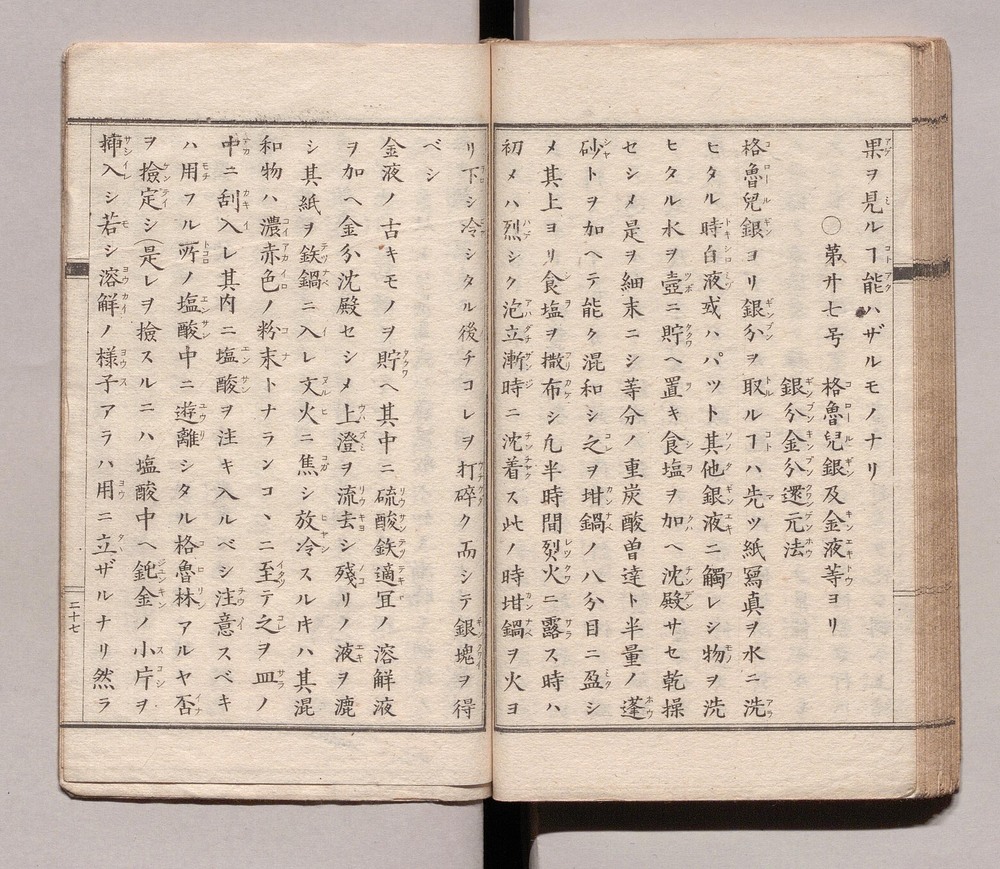 果ヲ見ルヿ能ハザルモノナリ
〇第廿七号　格魯兒銀及金液等ヨリ
銀分金分還元法
格魯兒銀ヨリ銀分ヲ取ルヿハ先ツ紙冩真ヲ水ニ洗
ヒタル時白液或ハパツト其他銀液ニ觸レシ物ヲ洗
ヒタル水ヲ壺ニ貯ヘ置キ食塩ヲ加ヘ沈殿サセ乾操
セシメ是ヲ細末ニシ等分ノ重炭酸曽達ト半量ノ蓬
砂トヲ加ヘテ能ク混和シ之ヲ坩鍋ノ八分目ニ盈シ
メ其上ヨリ食塩ヲ撒布シ凢半時間烈火ニ露ス時ハ
初メハ烈シク泡立漸時ニ沈着ス此ノ時坩鍋ヲ火ヨ
リ下シ冷シタル後チコレヲ打碎ク而シテ銀塊ヲ得
ベシ
金液ノ古キモノヲ貯ヘ其中ニ硫酸鉄適冝ノ溶解液
ヲ加ヘ金分沈殿セシメ上澄ヲ流去シ殘リノ液ヲ漉
シ其紙ヲ鉄鍋ニ入レ文火ニ焦シ放冷スルキハ其混
和物ハ濃赤色ノ粉末トナランコヽニ至テ之ヲ皿ノ
中ニ刮入レ其内ニ塩酸ヲ注キ入ルベシ注意スベキ
ハ用フル所ノ塩酸中ニ遊離シタル格魯林アルヤ否
ヲ撿定シ（是レヲ撿スルニハ塩酸中ヘ鈍金ノ小片ヲ
揷入シ若シ溶解ノ様子アラハ用ニ立ザルナリ然ラ
二十七